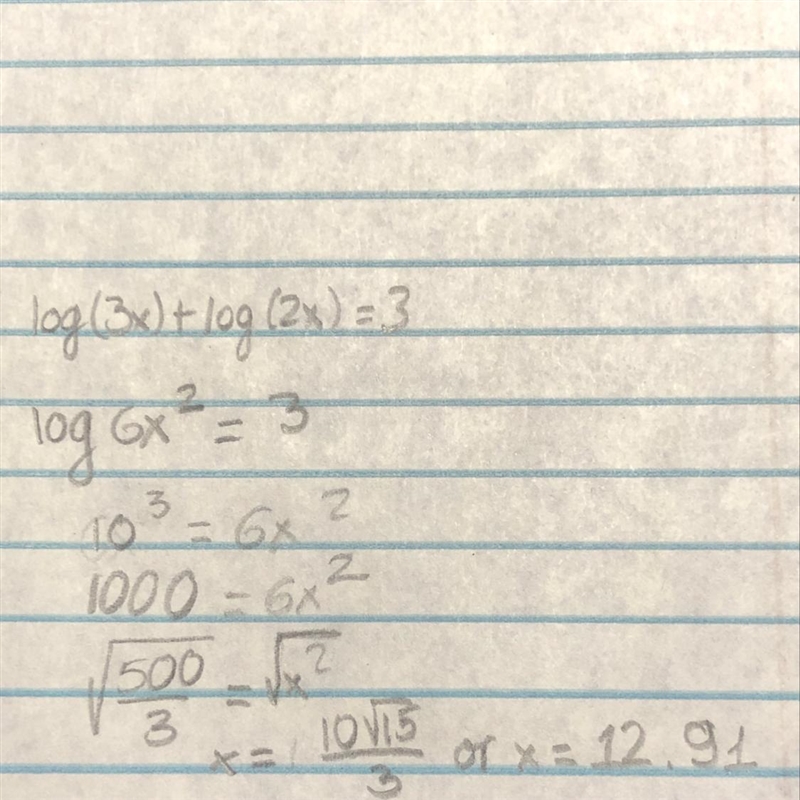 log(3x)+log(2x)=3
log 6x² = 3
10³ = 6x²
1000 = 6x²
√(500/3) = √x²
x = 10√15/3 or x = 12.91